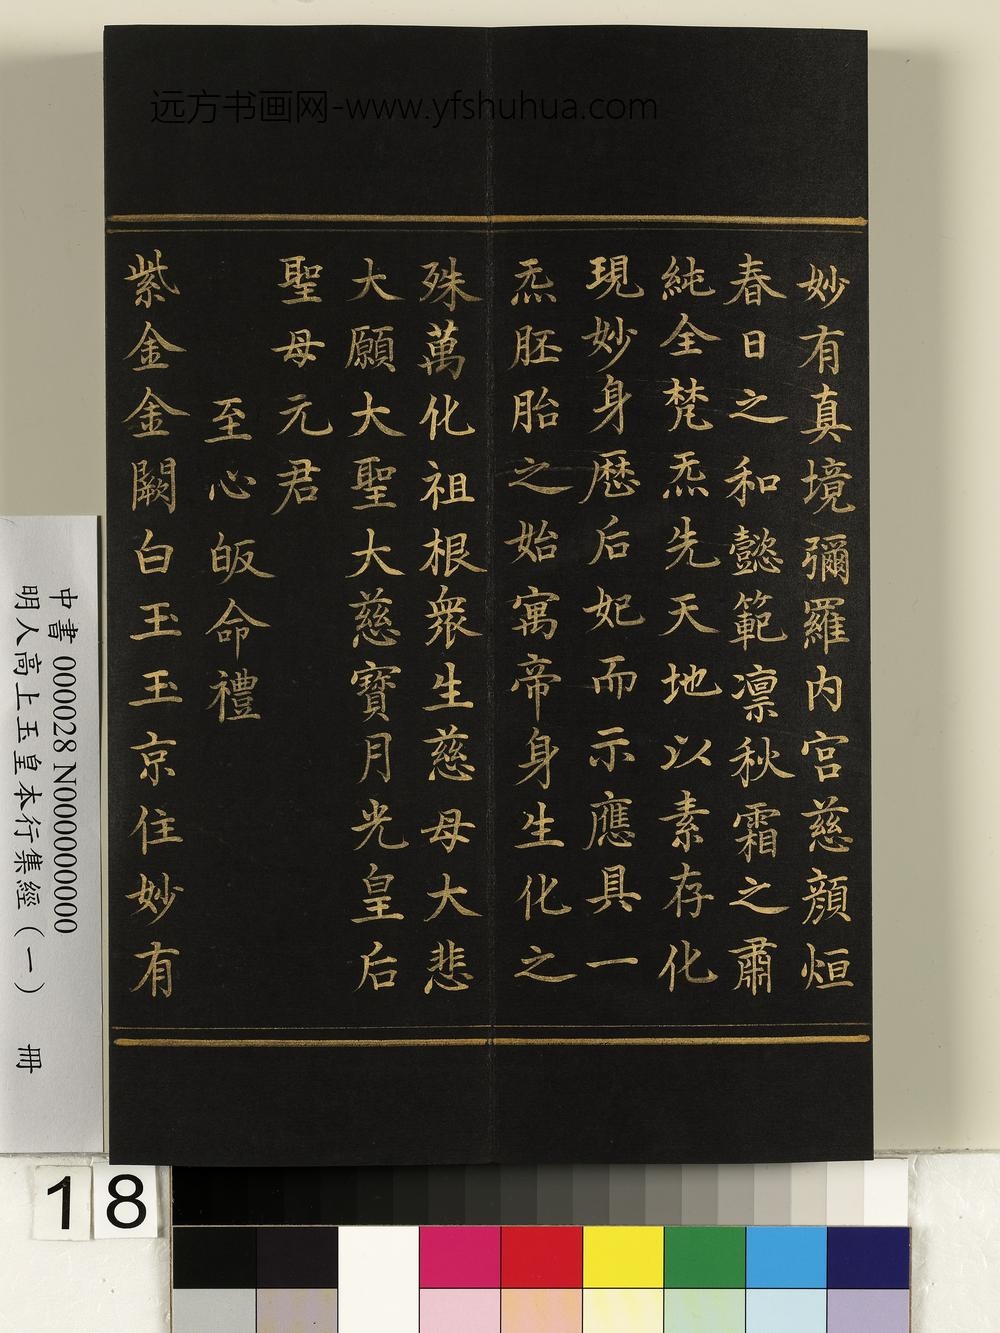 远方书画网-www.yfshuhua.com
妙有真境彌羅内宫慈顔烜
春日之和懿範凛秋霜之肅
純全梵炁先天地以素存化
現妙身歴后妃而示應具一
炁胚胎之始寓帝身生化之
殊萬化祖根衆生慈母大悲
大願大聖大慈寳月光皇后
聖母元君
至心皈命禮
紫金金闕白玉玉京住妙有
中書 000028 N000000000
明人高上玉皇本行集經（一） 冊
18